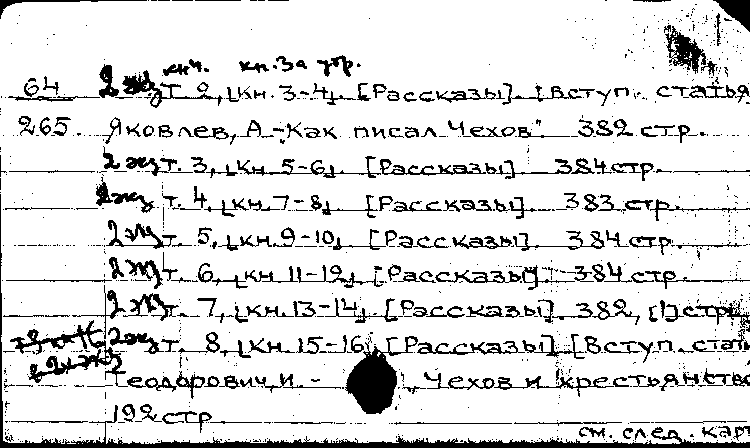 кн. за утр.
64 2 экз т. 2, [кн. 3-4]. [Рассказы]. [Вступ. статья
265. Яковлев, А. "Как писал Чехов". 382 стр.
2 экз т. 3, [кн. 5-6]. [Рассказы]. 384 стр.
2 экз т. 4, [кн. 7-8]. [Рассказы]. 383 стр.
2 экз т. 5, [кн. 9-10]. [Рассказы]. 384 стр.
2 экз т. 6, [кн. 11-12]. [Рассказы]. 384 стр.
2 экз т. 7, [кн. 13-14]. [Рассказы]. 382, [1] стр.
2 экз т. 8, [кн. 15-16]. [Рассказы]. [Вступ. стать
Теодорович, И. - „Чехов и крестьянство
192 стр
см. след. карт